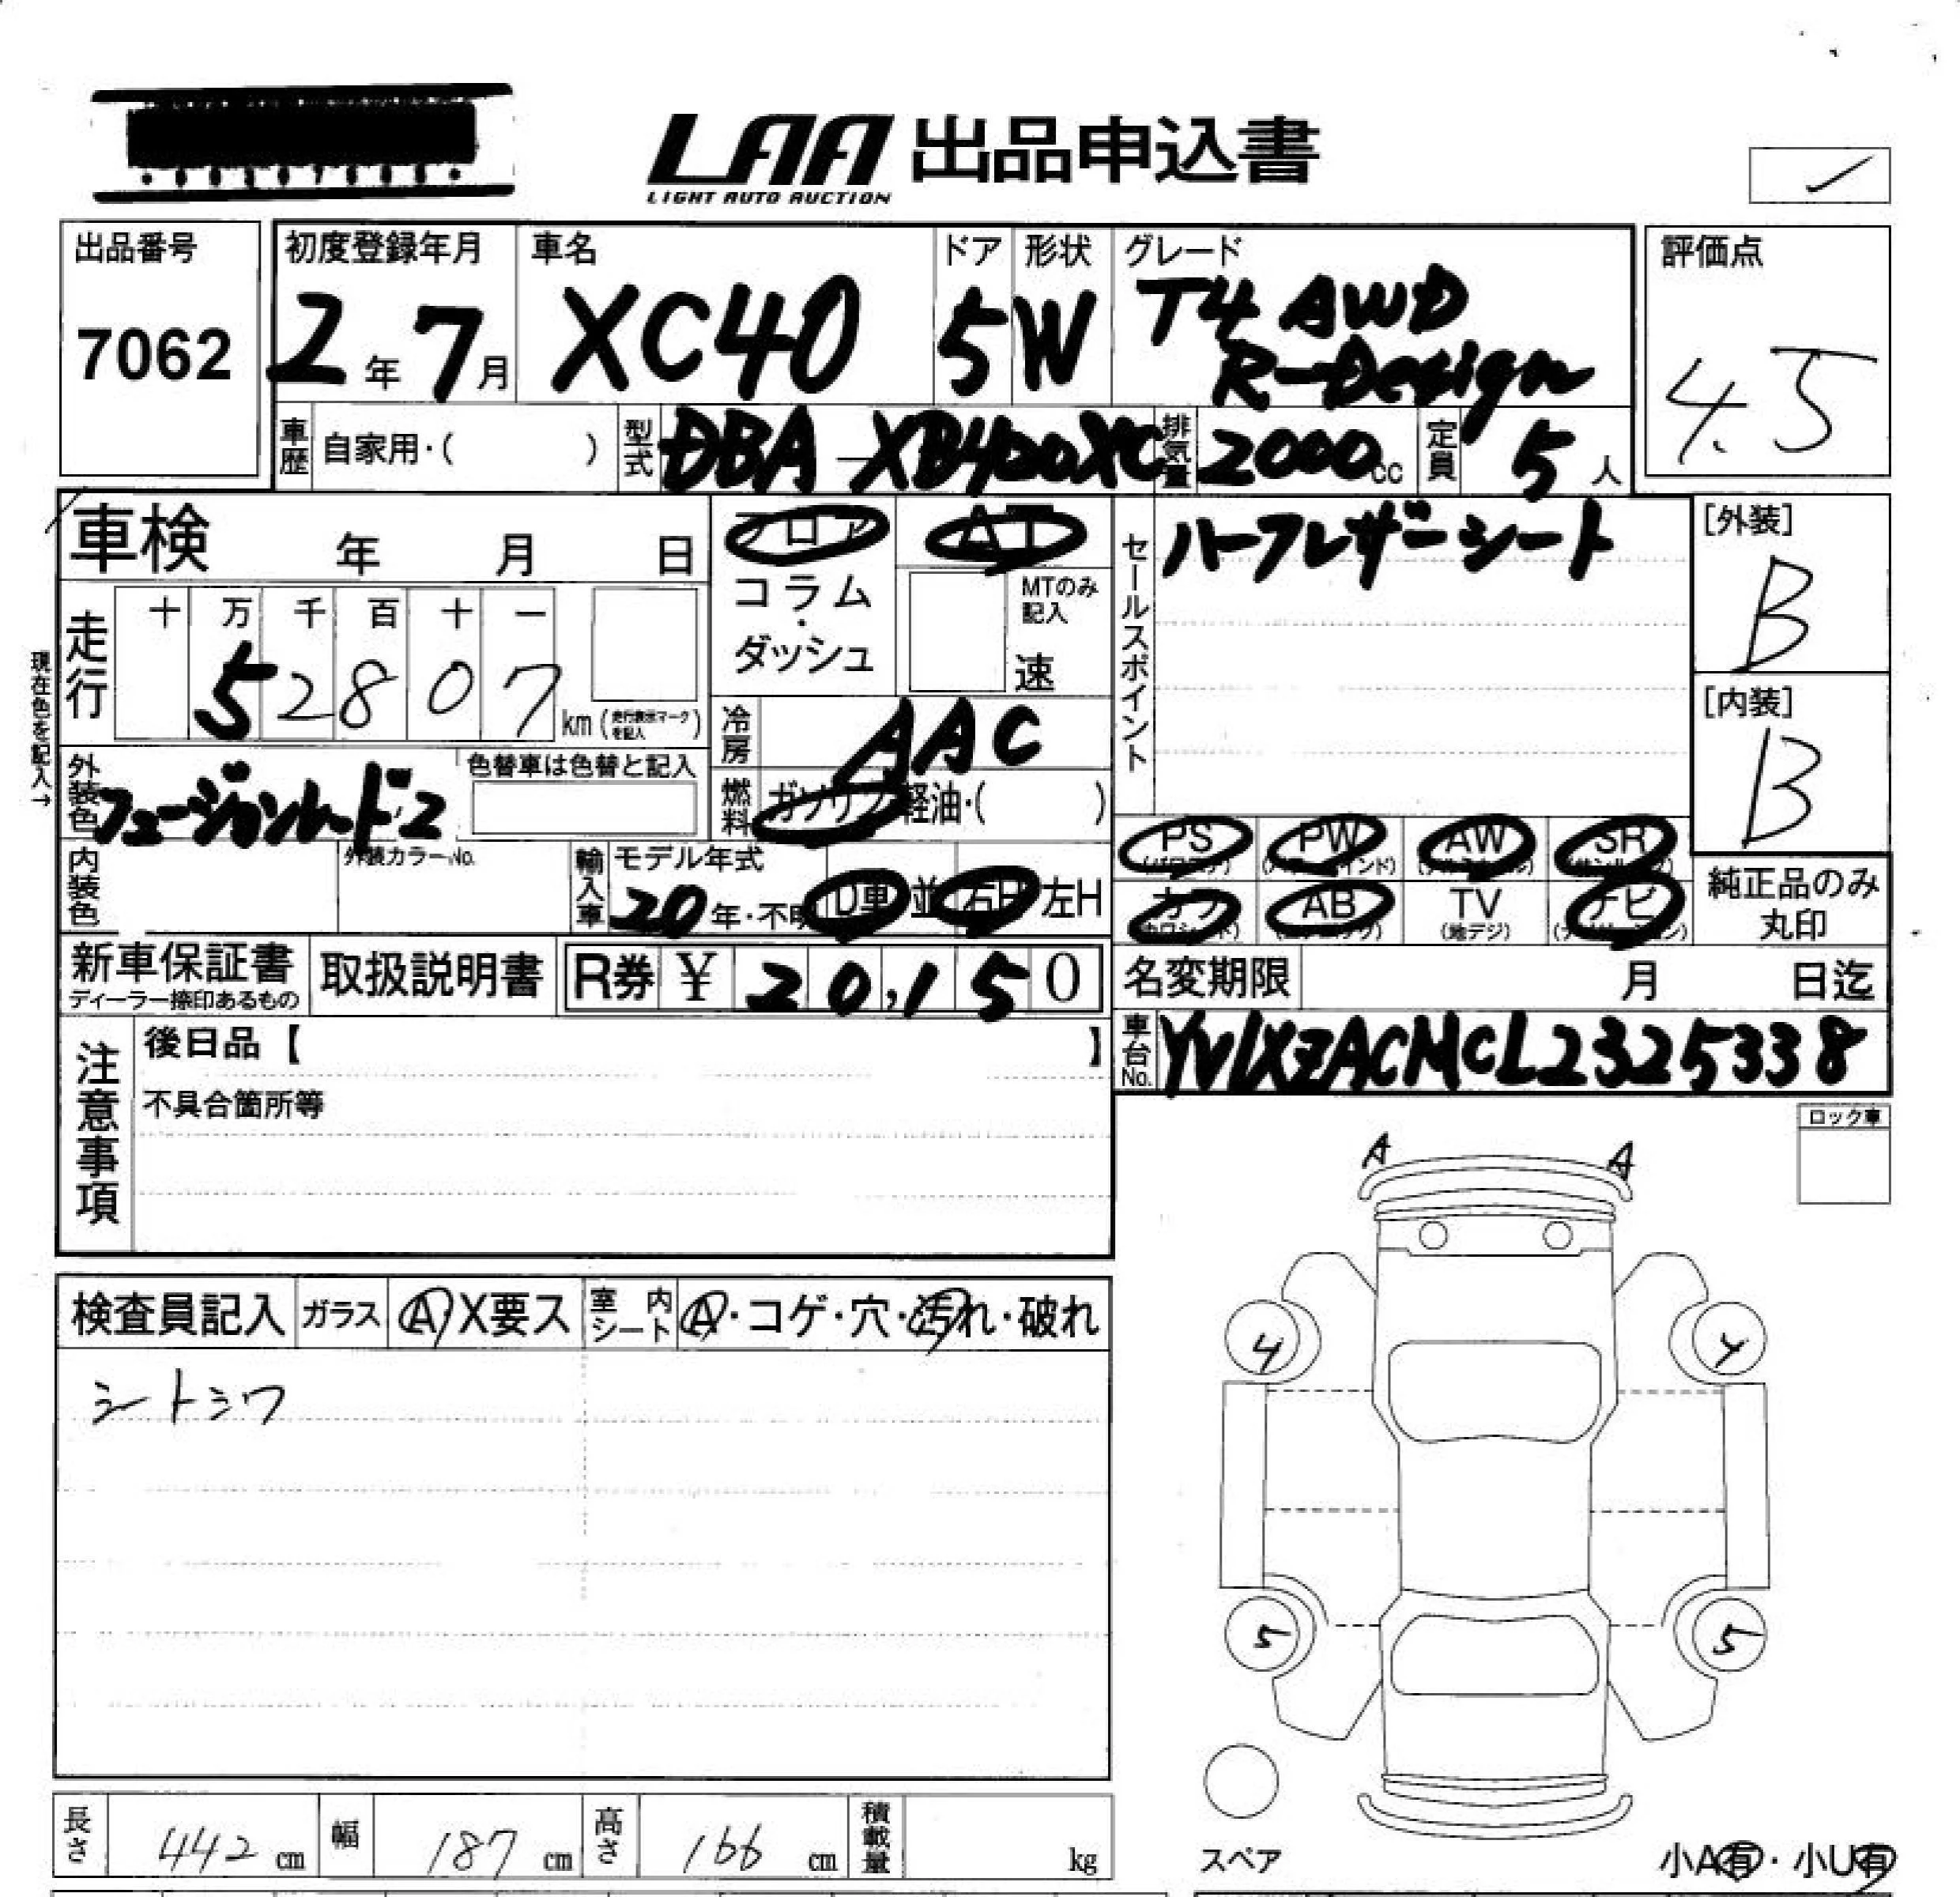 LAA 出品申込書
LIGHT AUTO AUCTION
出品番号
7062
初度登録年月
2年7月
車名
XC40
ドア
5
形状
W
グレード
T4 AWD
R-Design
評価点
4.5
車歴 自家用・( )
型式 DBA-XB420XC
排気量 2000cc
定員 5人
車検 年 月 日
フロア
コラム
・
ダッシュ
AT
MTのみ
記入
速
セールスポイント
ハーフレザーシート
[外装]
B
[内装]
B
現在色を記入→
走行
十 万 千 百 十 一
5 2 8 0 7 km (走行表示マークを記入)
冷房 AAC
燃料 ガソリン・軽油・( )
外装色 フュージョンレッド2
色替車は色替と記入
内装色
外装カラーNo.
輸入車
モデル年式
20年・不明
D車 並 右H 左H
PS
(パワステ)
PW
(パワーウインド)
AW
(アルミホイール)
SR
(サンルーフ)
カワ
(カワシート)
AB
(エアバッグ)
TV
(地デジ)
ナビ
(ナビゲーション)
純正品のみ
丸印
新車保証書
ディーラー捺印あるもの
取扱説明書
R券 ¥ 20,150
名変期限 月 日迄
車台No. YV1XZACMCL2325338
注意事項
後日品【 】
不具合箇所等
ロック車
A A
検査員記入
ガラス A X要ス
室内シート A・コゲ・穴・汚れ・破れ
シートシワ
4 4
5 5
スペア
小A有・小U有
長さ 442 cm
幅 187 cm
高さ 166 cm
積載量 kg